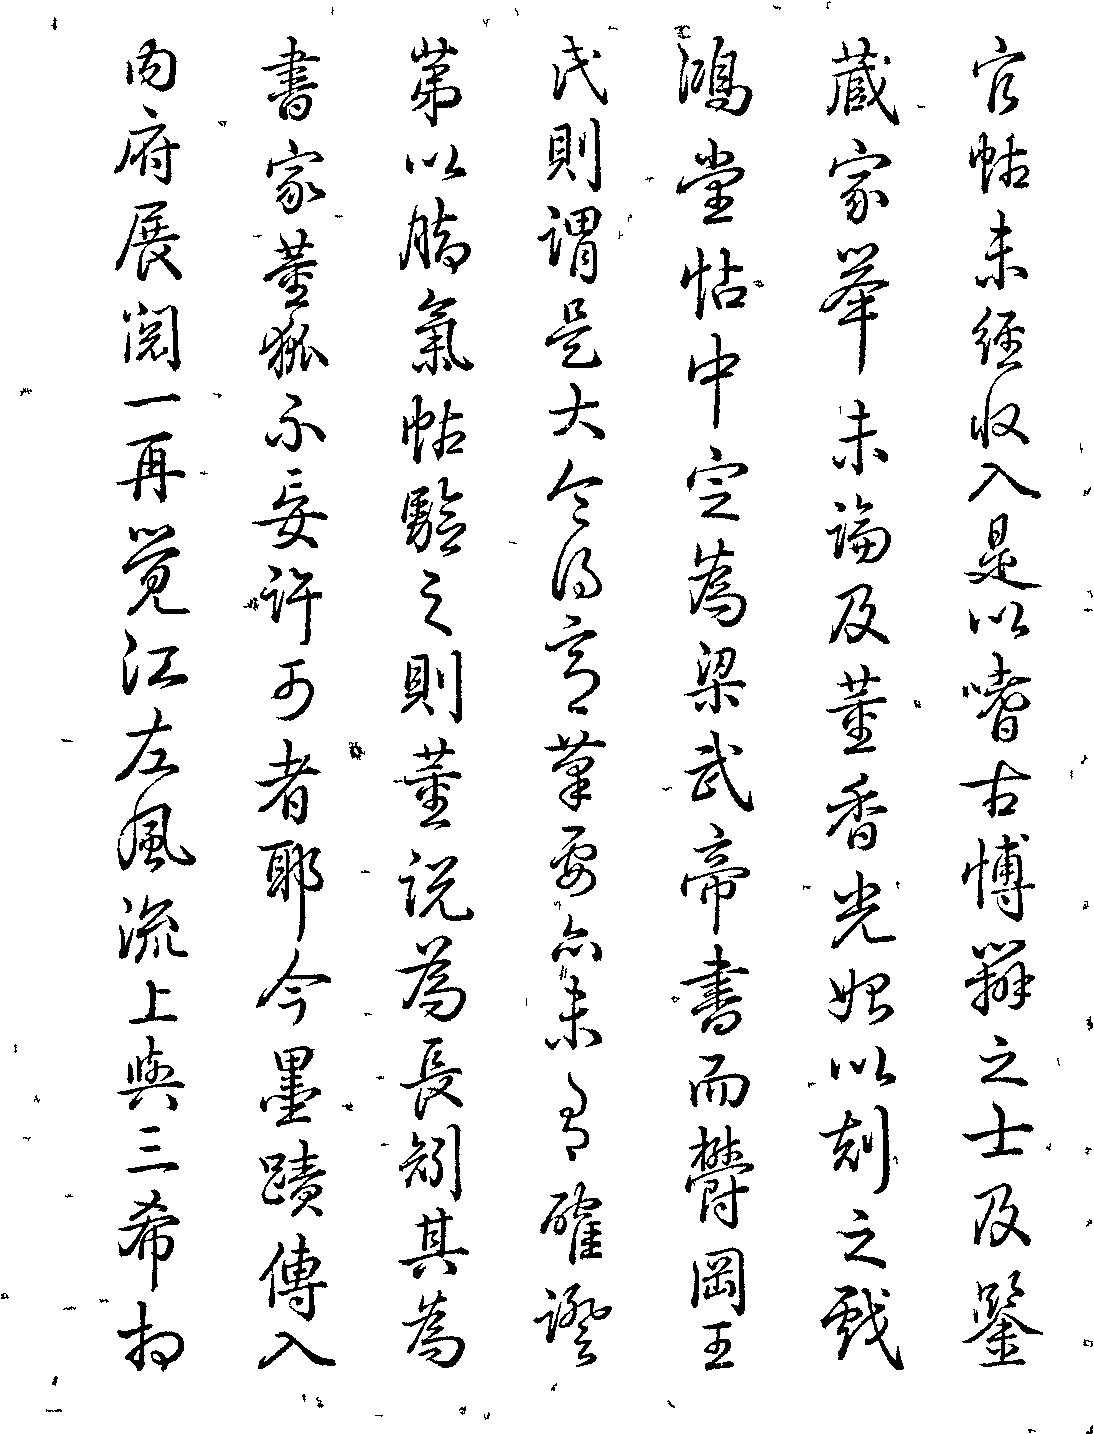 官帖未經收入是以嗜古博辨之士及鑒
藏家舉未論及董香光始以刻之戲
鴻堂帖中定為梁武帝書而欝岡王
氏則謂是大令得意筆要亦未有確證
第以腦氣帖驗之則董説為長矧其為
書家董狐不妄許可者耶今墨蹟傳入
内府展閲一再覺江左風流上與三希相